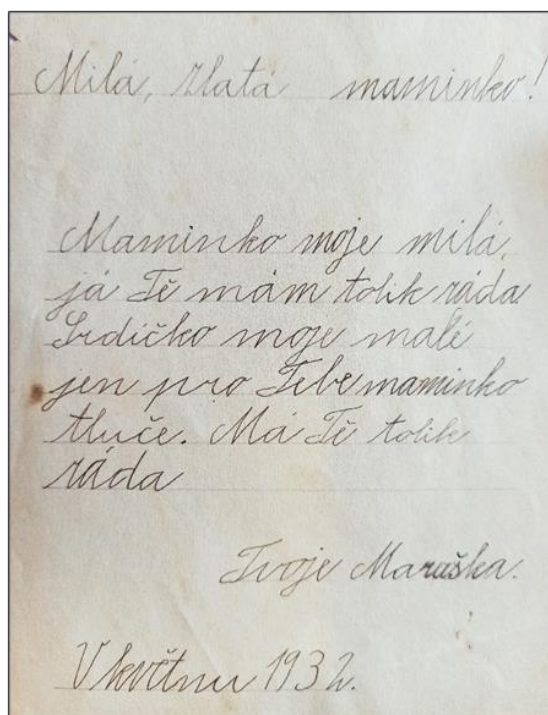 Milá, zlatá maminko!
Maminko moje milá,
já Tě mám tolik ráda
Srdíčko moje malé
jen pro Tebe maminko
tluče. Má Tě tolik
ráda
Tvoje Maruška.
V květnu 1932.